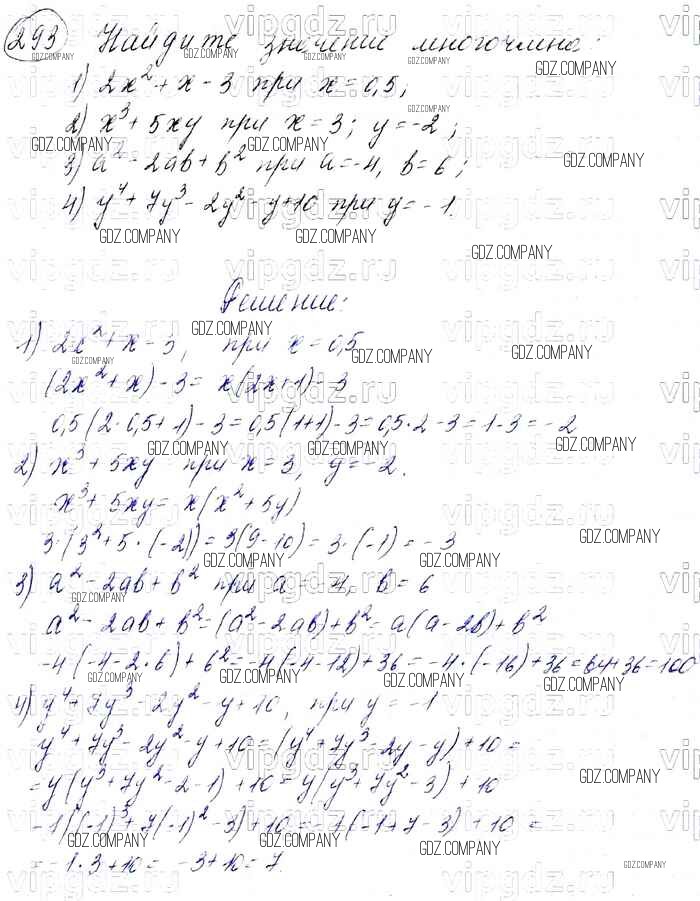 293 Найдите значение многочлена:
1) 2x² + x - 3 при x = 0,5;
2) x³ + 5xy при x = 3; y = -2;
3) a² - 2ab + b² при a = -4, b = 6;
4) y⁴ + 7y³ - 2y² - y + 10 при y = -1.
Решение:
1) 2x² + x - 3, при x = 0,5
(2x² + x) - 3 = x(2x + 1) - 3
0,5(2·0,5 + 1) - 3 = 0,5(1+1) - 3 = 0,5·2 - 3 = 1 - 3 = -2
2) x³ + 5xy при x = 3, y = -2.
x³ + 5xy = x(x² + 5y)
3·(3² + 5·(-2)) = 3(9 - 10) = 3·(-1) = -3
3) a² - 2ab + b² при a = -4, b = 6
a² - 2ab + b² = (a² - 2ab) + b² = a(a - 2b) + b²
-4(-4 - 2·6) + 6² = -4(-4 - 12) + 36 = -4·(-16) + 36 = 64 + 36 = 100
4) y⁴ + 7y³ - 2y² - y + 10, при y = -1
y⁴ + 7y³ - 2y² - y + 10 = (y⁴ + 7y³ - 2y - y) + 10 =
= y(y³ + 7y² - 2 - 1) + 10 = y(y³ + 7y² - 3) + 10
-1((-1)³ + 7(-1)² - 3) + 10 = -1(-1 + 7 - 3) + 10 =
= -1·3 + 10 = -3 + 10 = 7.